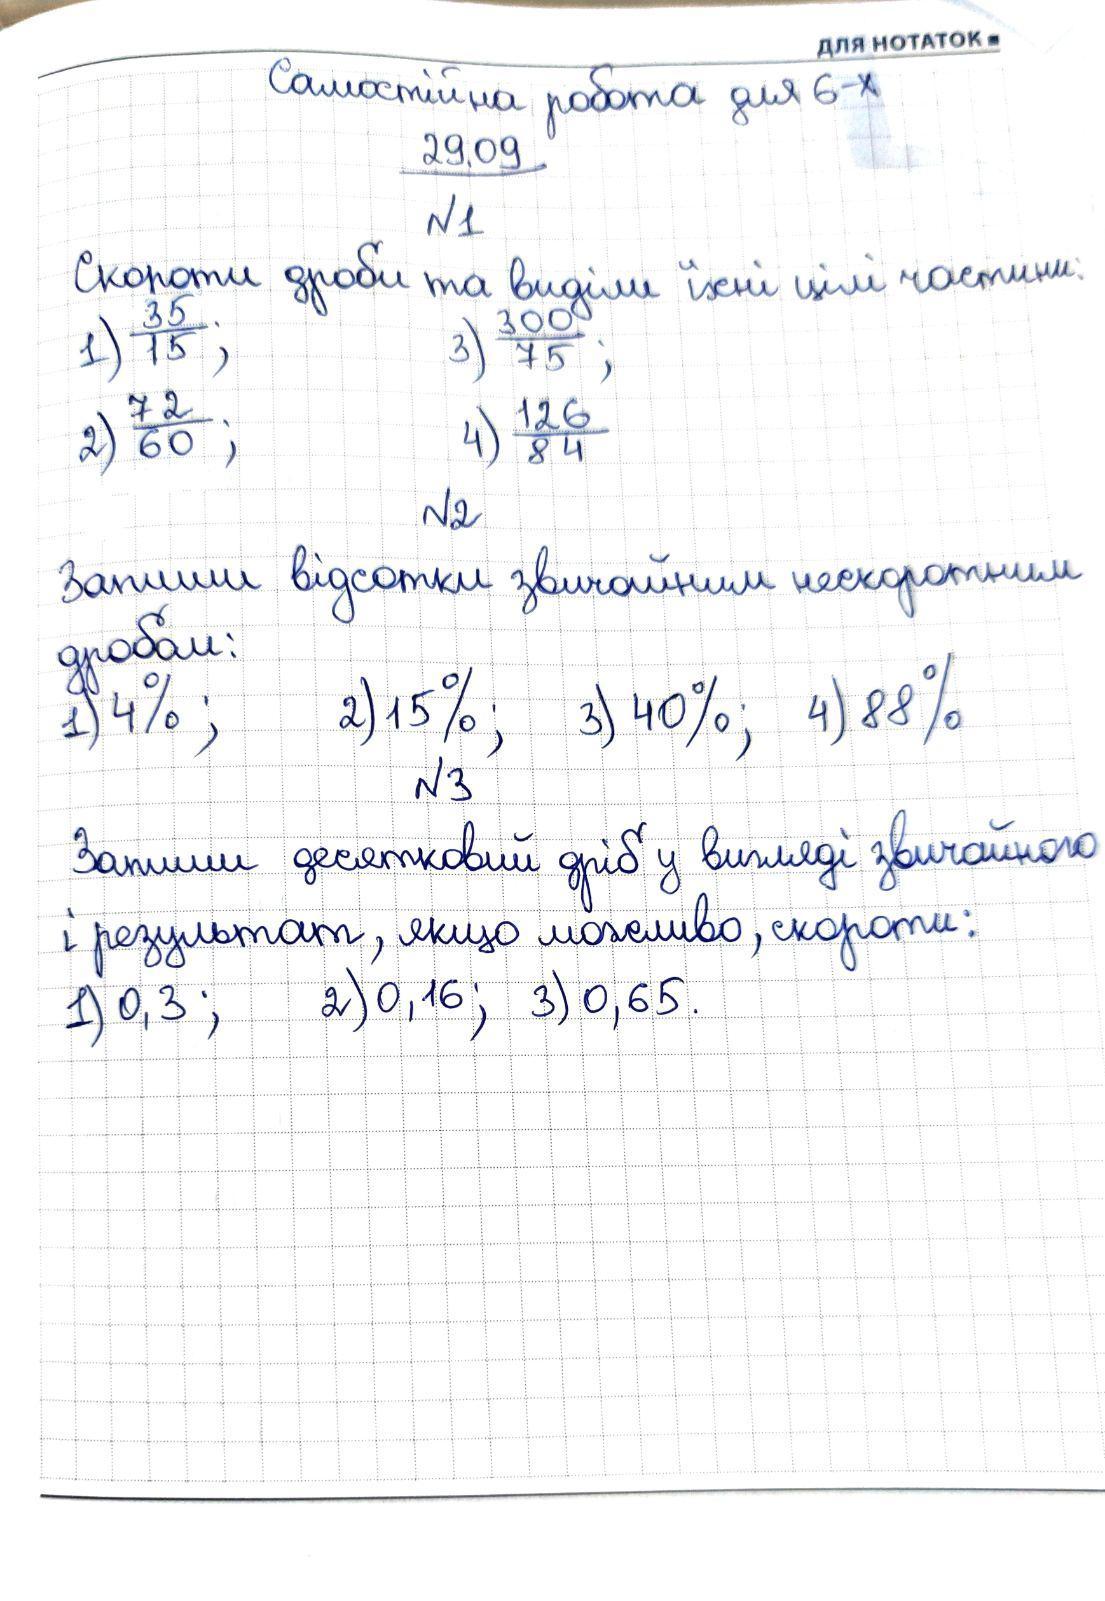 ДЛЯ НОТАТОК
Самостійна робота для 6-х
29.09
№1
Скороти дроби та виділи їхні цілі частини:
1) 35/15; 3) 300/75;
2) 72/60; 4) 126/84
№2
Запиши відсотки звичайним нескоротним
дробом:
1) 4%; 2) 15%; 3) 40%; 4) 88%
№3
Запиши десятковий дріб у вигляді звичайного
і результат, якщо можливо, скороти:
1) 0,3; 2) 0,16; 3) 0,65.